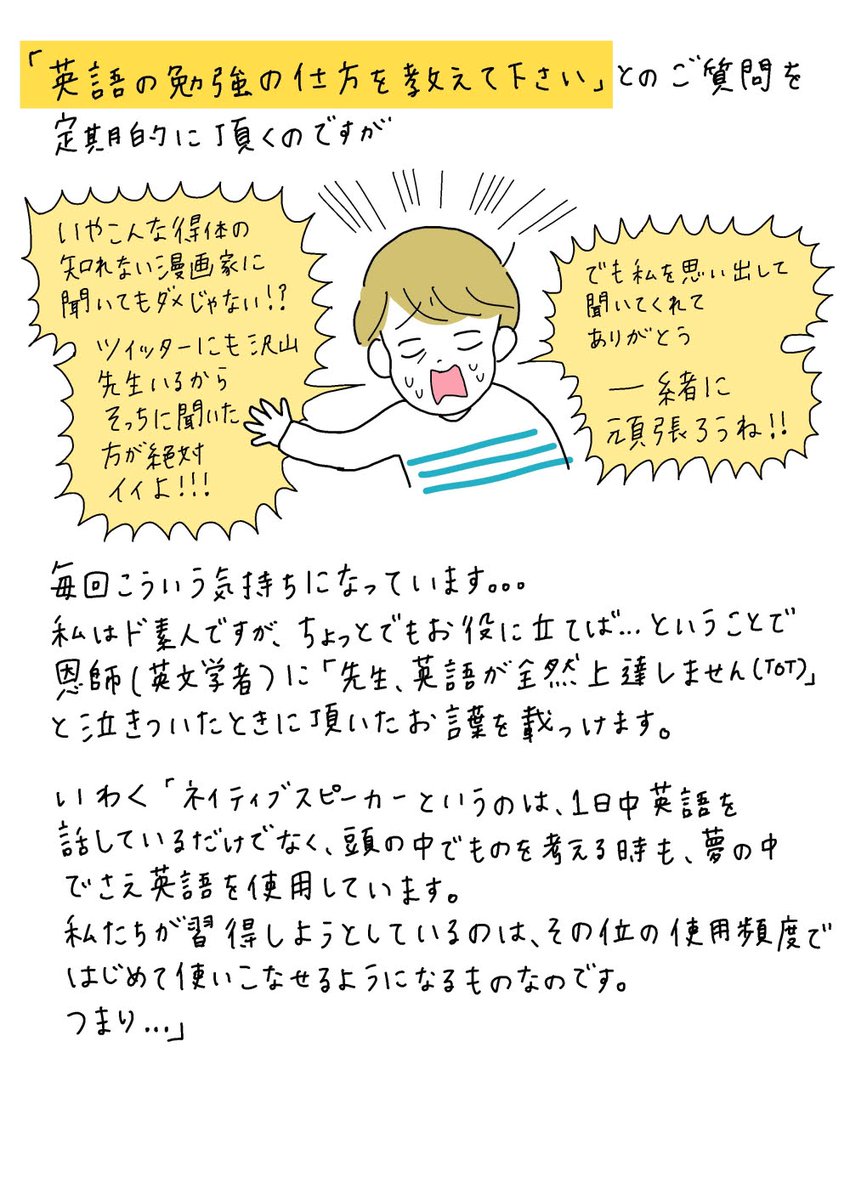 「英語の勉強の仕方を教えて下さい」とのご質問を
定期的に頂くのですが
いやこんな得体の
知れない漫画家に
聞いてもダメじゃない!?
ツイッターにも沢山
先生いるから
そっちに聞いた
方が絶対
イイよ!!!
でも私を思い出して
聞いてくれて
ありがとう
一緒に
頑張ろうね!!
毎回こういう気持ちになっています。。。
私はド素人ですが、ちょっとでもお役に立てば...ということで
恩師(英文学者)に「先生、英語が全然上達しません(ToT)」
と泣きついたときに頂いたお言葉を載っけます。
いわく「ネイティブスピーカーというのは、1日中英語を
話しているだけでなく、頭の中でものを考える時も、夢の中
でさえ英語を使用しています。
私たちが習得しようとしているのは、その位の使用頻度で
はじめて使いこなせるようになるものなのです。
つまり...」